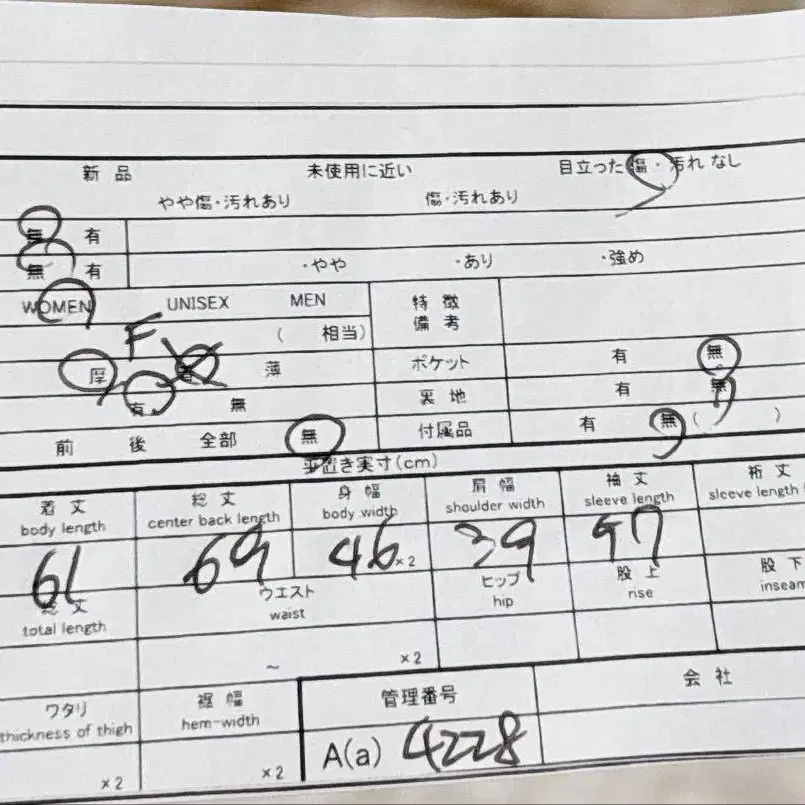 新品 未使用に近い 目立った傷・汚れなし
やや傷・汚れあり 傷・汚れあり
無 有
無 有 ・やや ・あり ・強め
WOMEN UNISEX MEN 特徴
備考
F ( 相当)
厚 薄 ポケット 有 無
有 無 裏地 有 無
前 後 全部 無 付属品 有 無 ( )
平置き実寸(cm)
着丈 総丈 身幅 肩幅 袖丈 裄丈
body length center back length body width shoulder width sleeve length sleeve length
61 69 46 ×2 39 47
総丈 ウエスト ヒップ 股上 股下
total length waist hip rise inseam
~ ×2
ワタリ 裾幅 管理番号 会社
thickness of thigh hem-width
×2 ×2 A(a) 4228